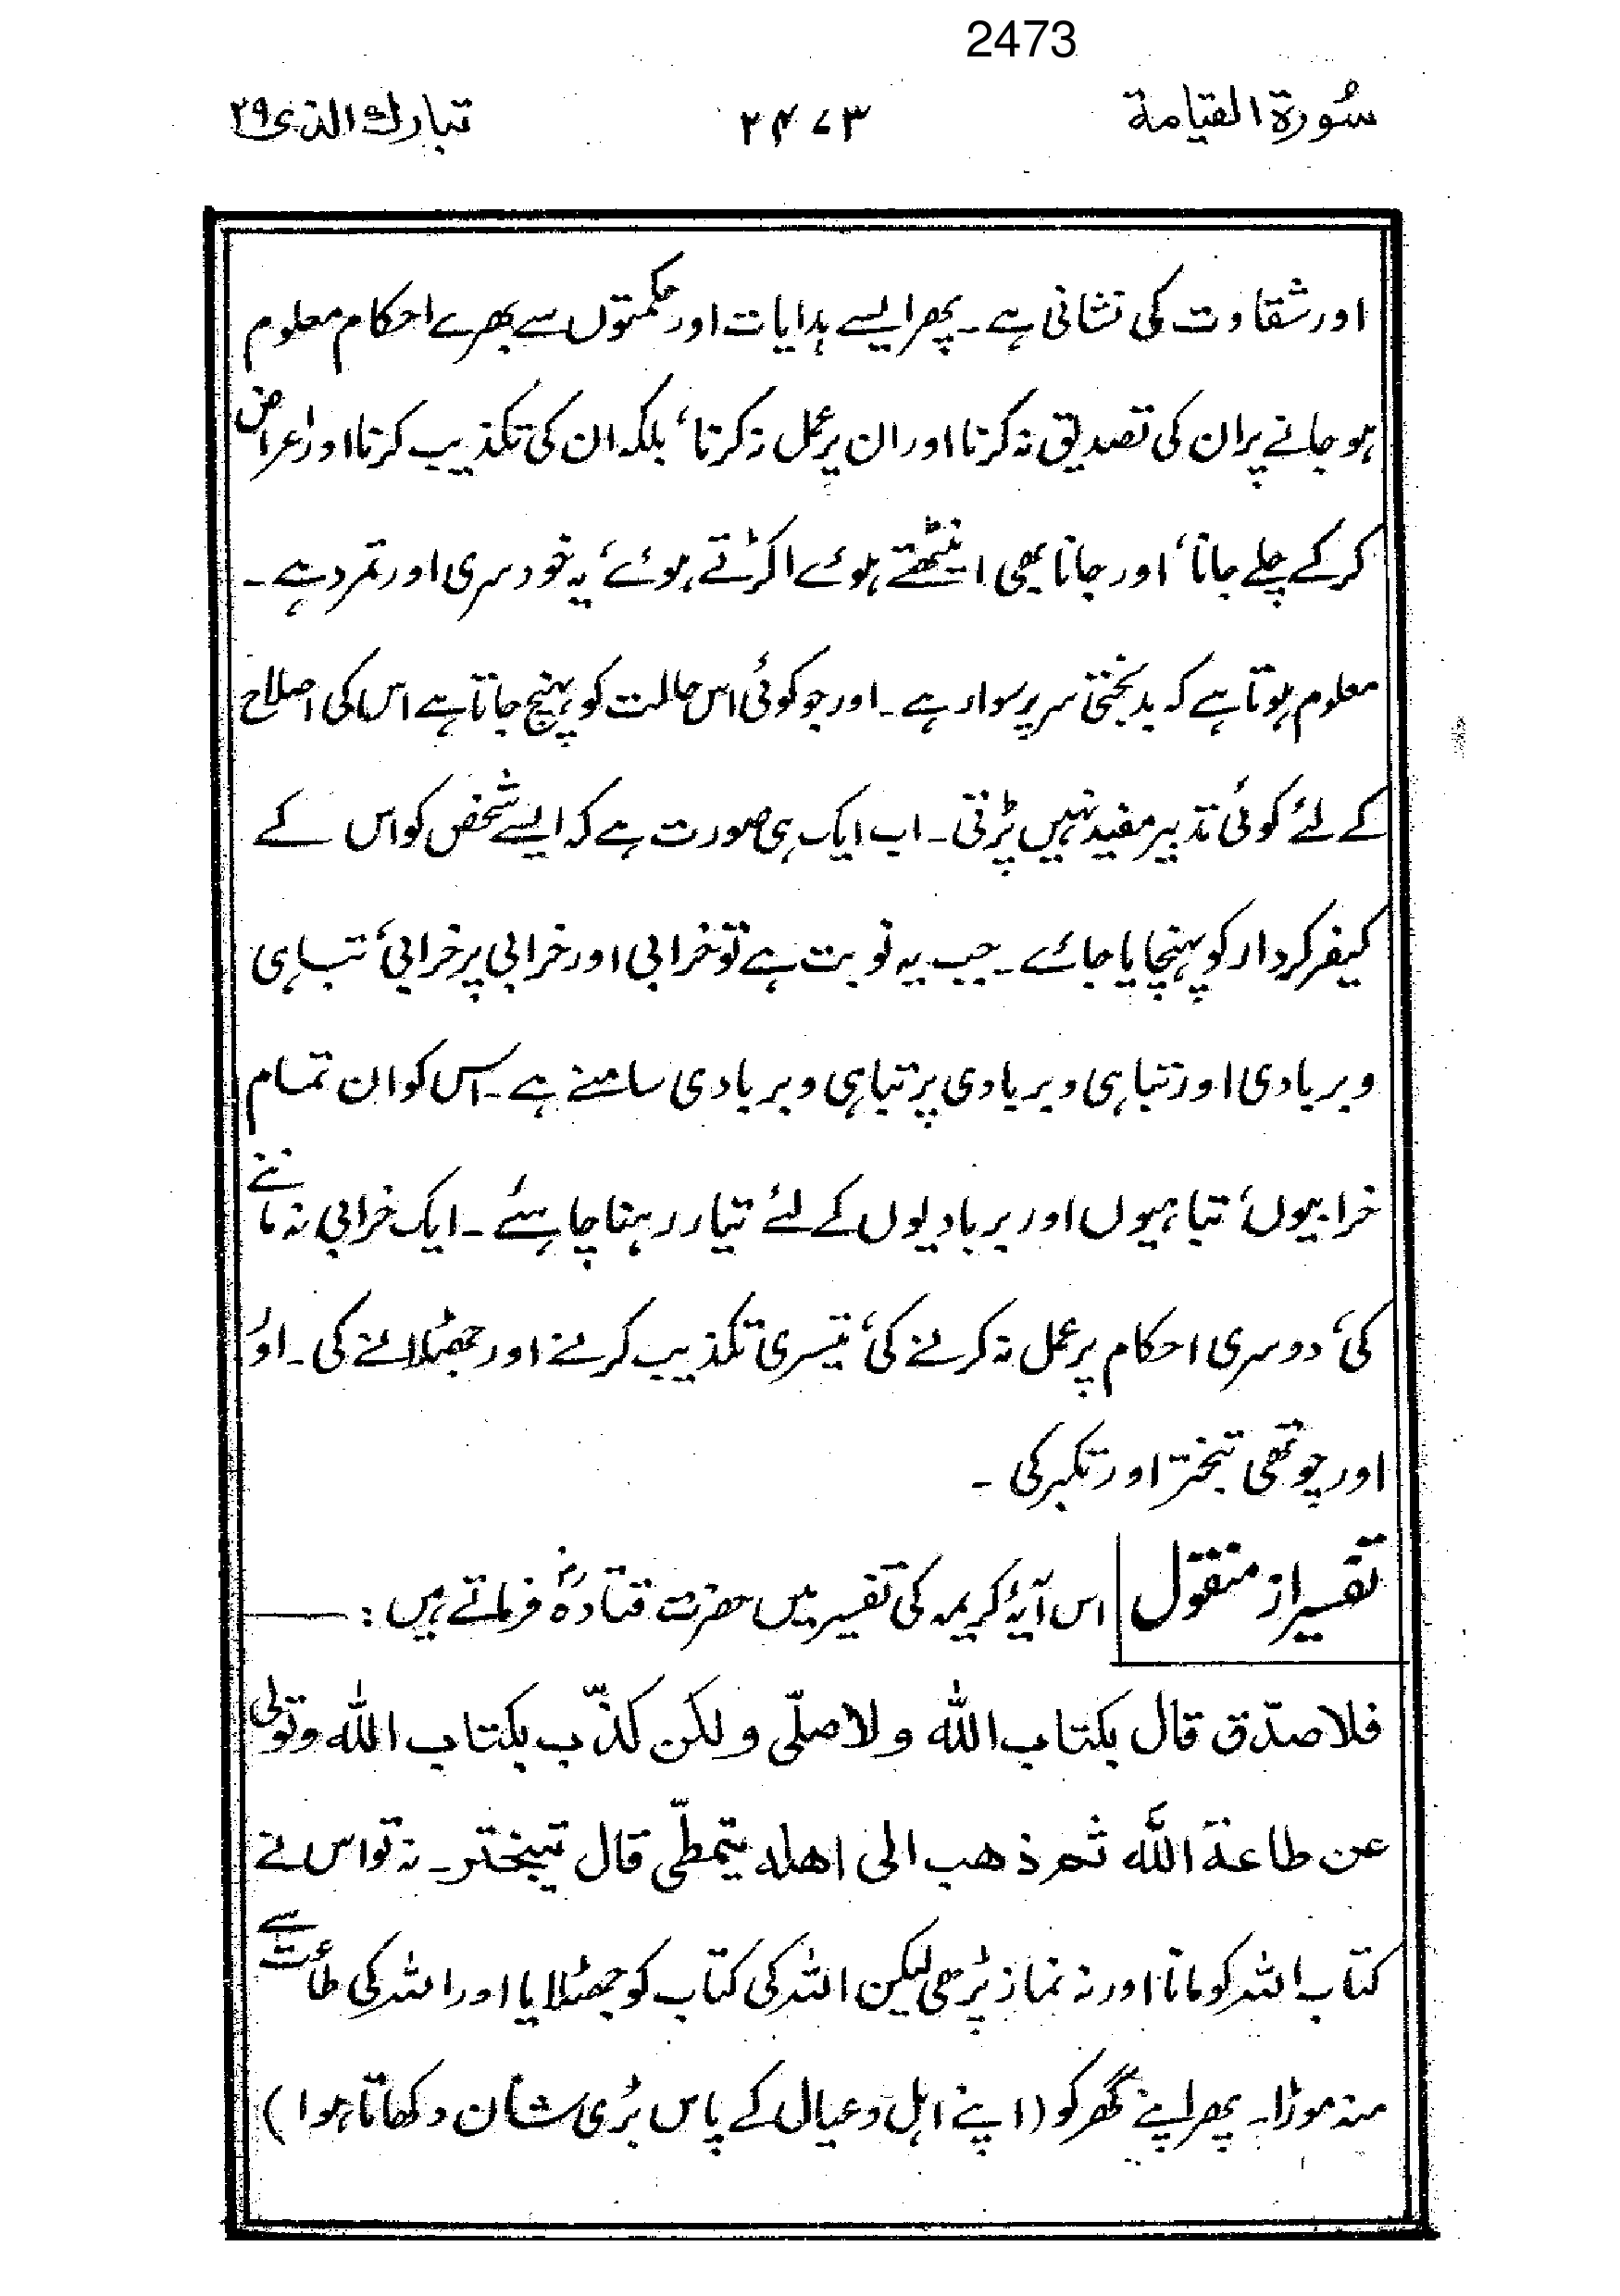 2473
سُورۃ القیامة ۲۴۷۳ تبارك الذی ۲۹
اور شقاوت کی نشانی ہے۔ پھر ایسے ہدایات اور حکمتوں سے بھرے احکام معلوم
ہو جانے پر ان کی تصدیق نہ کرنا اور ان پر عمل نہ کرنا، بلکہ ان کی تکذیب کرنا اور اعراض
کر کے چلے جانا، اور جانا بھی اینٹھتے ہوئے اکڑتے ہوئے، یہ خود سری اور تمرد ہے۔
معلوم ہوتا ہے کہ بدبختی سر پر سوار ہے۔ اور جو کوئی اس حالت کو پہنچ جاتا ہے اس کی اصلاح
کے لئے کوئی تدبیر مفید نہیں پڑتی۔ اب ایک ہی صورت ہے کہ ایسے شخص کو اس کے
کیفر کردار کو پہنچایا جائے۔ جب یہ نوبت ہے تو خرابی اور خرابی پر خرابی، تباہی
و بربادی اور تباہی و بربادی پر تباہی و بربادی سامنے ہے۔ اس کو ان تمام
خرابیوں، تباہیوں اور بربادیوں کے لئے تیار رہنا چاہئے۔ ایک خرابی نہ ماننے
کی، دوسری احکام پر عمل نہ کرنے کی، تیسری تکذیب کرنے اور جھٹلانے کی۔ اور
اور چوتھی تبختر اور تکبر کی۔
تفسیر از منقول اس آیۂ کریمہ کی تفسیر میں حضرت قتادہؓ فرماتے ہیں :
فلا صدّق قال بکتاب اللّٰه ولا صلّی و لکن کذّب بکتاب اللّٰه وتولی
عن طاعة اللّٰه ثم ذهب الی اهله یتمطّی قال تیبختر۔ نہ تو اس نے
کتاب اللہ کو مانا اور نہ نماز پڑھی لیکن اللہ کی کتاب کو جھٹلایا اور اللہ کی طاعت سے
منہ موڑا۔ پھر اپنے گھر کو (اپنے اہل و عیال کے پاس بڑی شان دکھاتا ہوا)